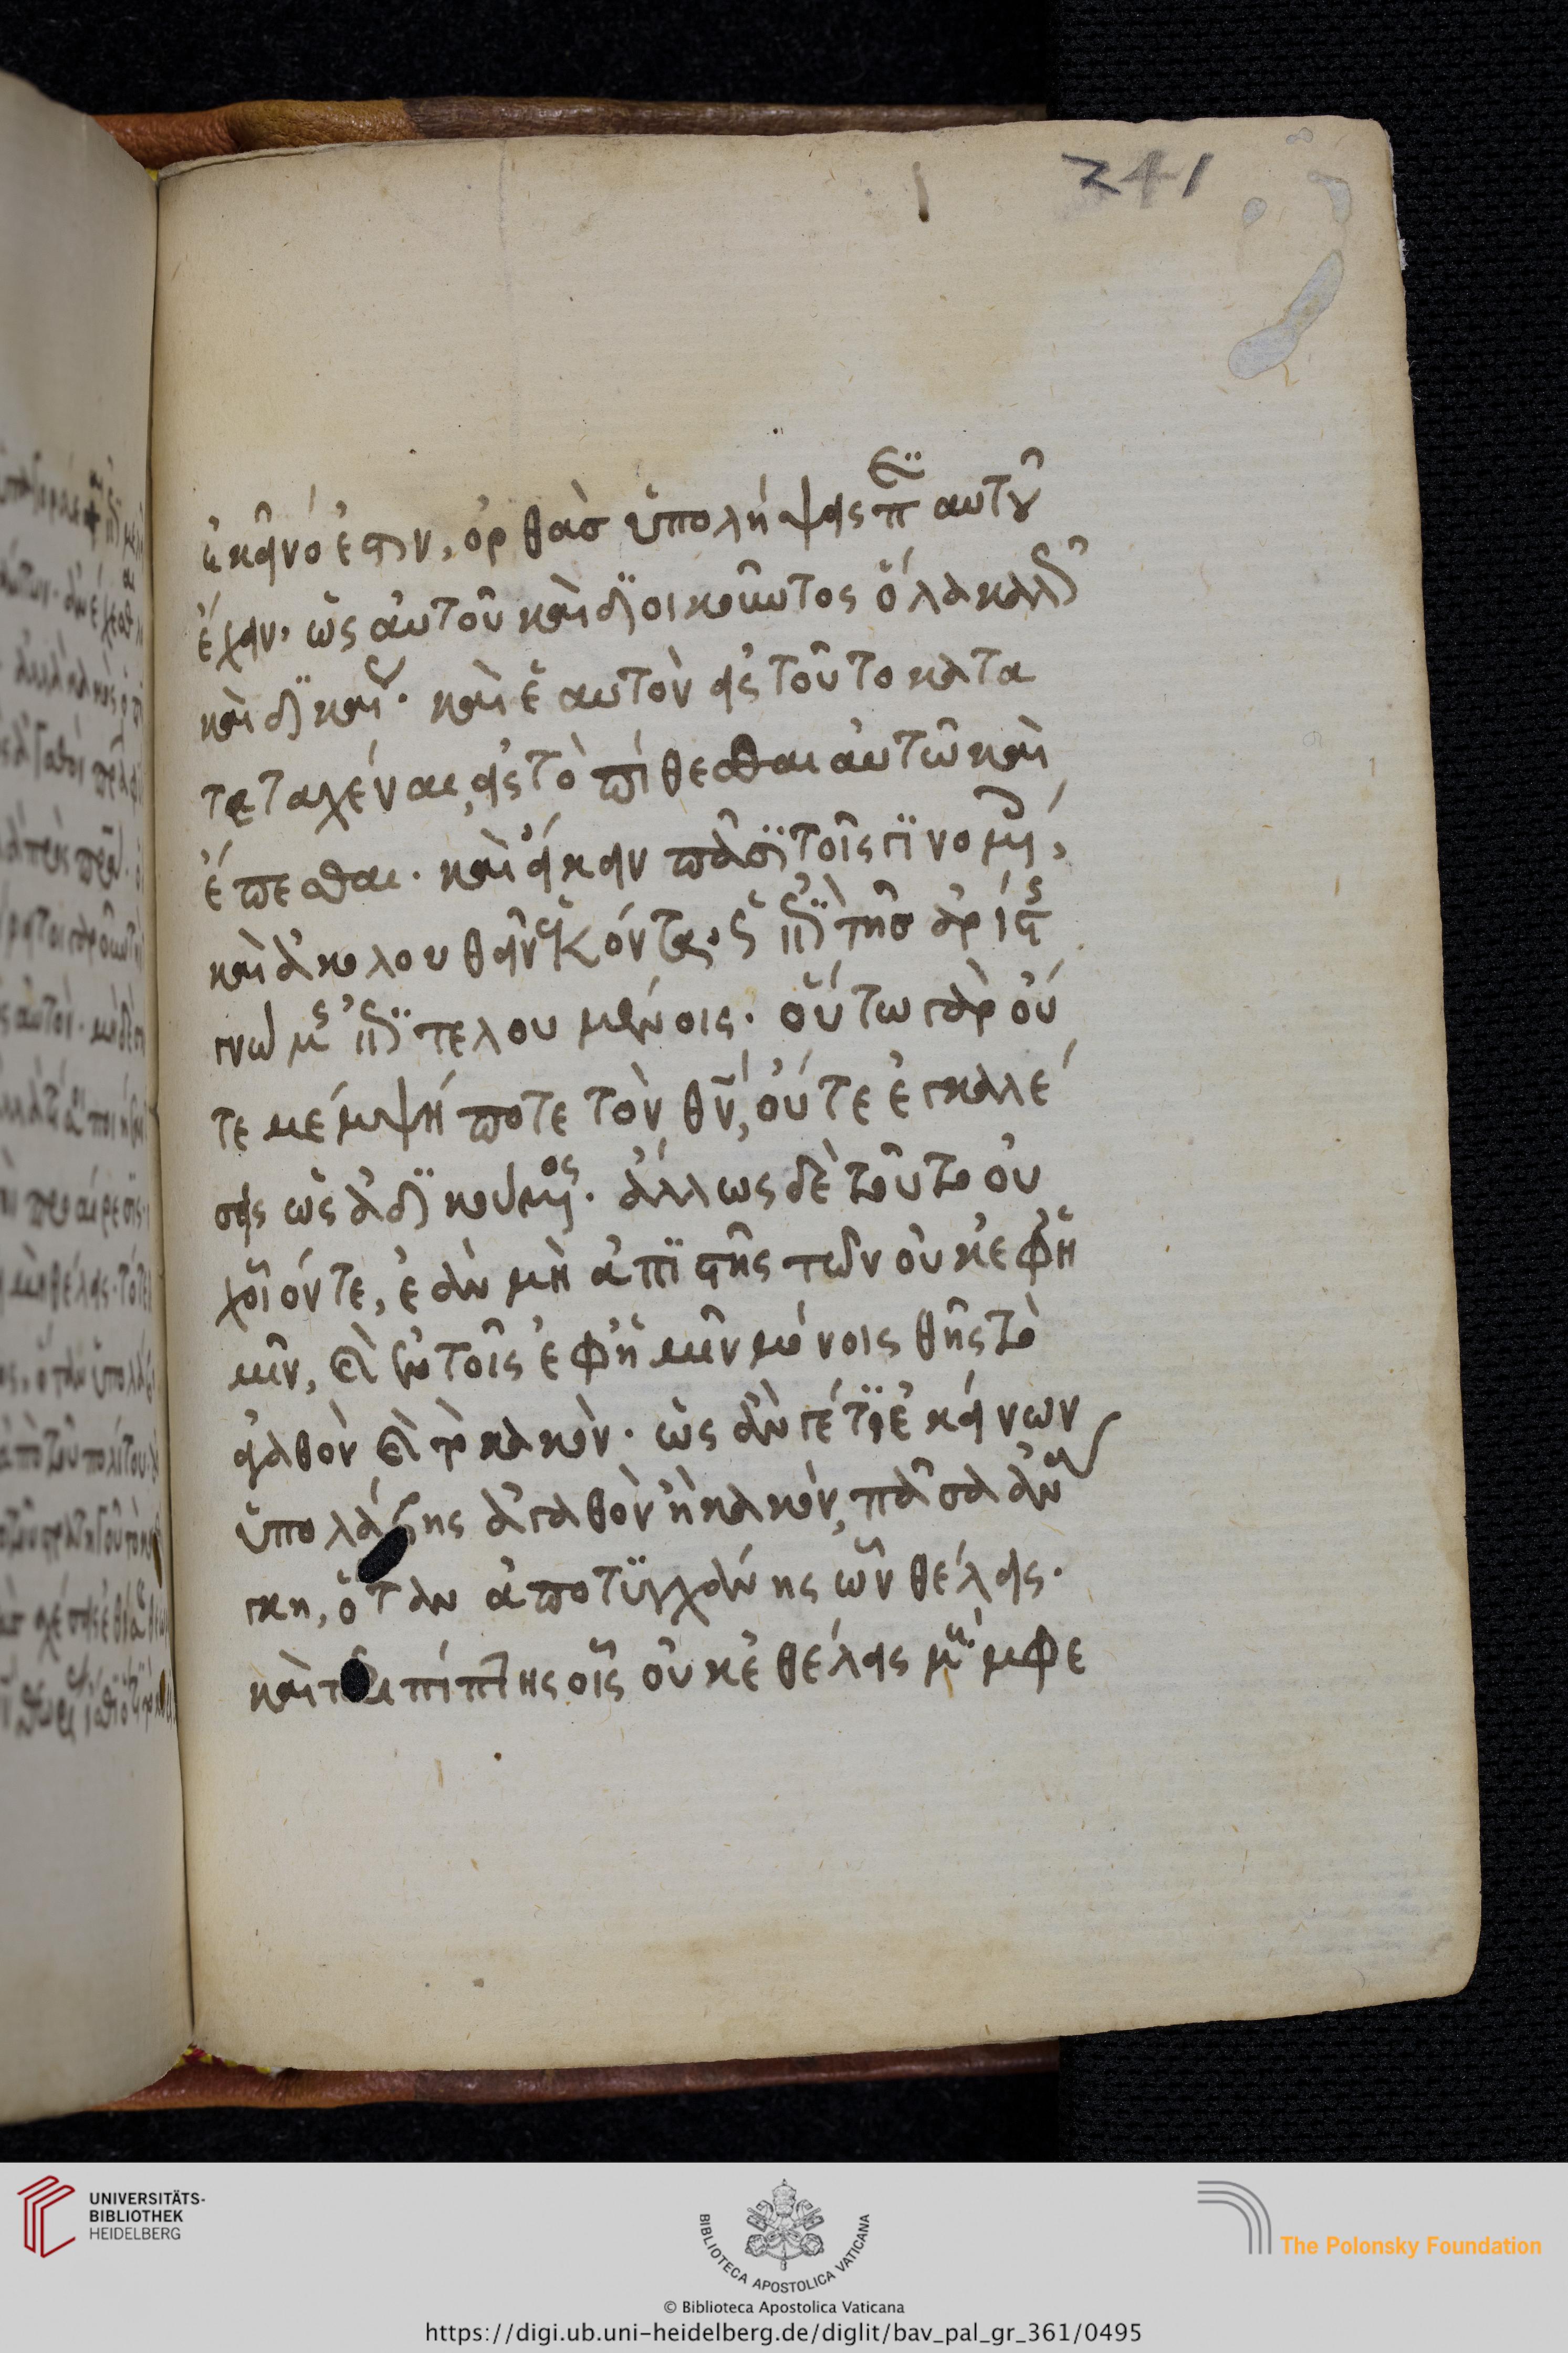 241
ἐκεῖνό ἐστιν, ὀρθὰσ ὑπολήψεις περὶ αὐτοῦ
ἔχειν· ὡς αὐτοῦ καὶ διοικοῦντος ὅλα καλῶς
καὶ δικαίως· καὶ ἑαυτὸν εἰς τοῦτο κατα
τεταχέναι, εἰς τὸ πίθεσθαι αὐτῶ καὶ
ἕπεσθαι· καὶ εἴκειν πᾶσι τοῖς γινομένοις,
καὶ ἀκολουθεῖν ἑκόντα· ὡς ὑπὸ τῆσ ἀρίστης
γνώμης ἐπιτελουμένοις· οὕτω γὰρ οὔ
τε μέμψη ποτε τὸν θν, οὔτε ἐγκαλέ
σεις ὡς ἀδικούμενος. ἄλλως δὲ τοῦτο οὐ
χοἷόντε, ἐὰν μὴ ἀπιστῆς τῶν οὐκ ἐφ' ἡ
μῖν, καὶ ἐν τοῖς ἐφ' ἡμῖν μόνοις θῆς τὸ
ἀγαθὸν καὶ τὸ κακὸν· ὡς ἄν γέ τι ἐκείνων
ὑπολάβης ἀγαθὸν ἢ κακὸν, πᾶσα ἀνά
γκη, ὅταν ἀποτυγχάνης ὧν θέλεις·
καὶ περιπίπτης οἷς οὐκ ἐθέλεις μέμφε
UNIVERSITÄTS-
BIBLIOTHEK
HEIDELBERG
BIBLIOTECA APOSTOLICA VATICANA
© Biblioteca Apostolica Vaticana
The Polonsky Foundation
https://digi.ub.uni-heidelberg.de/diglit/bav_pal_gr_361/0495